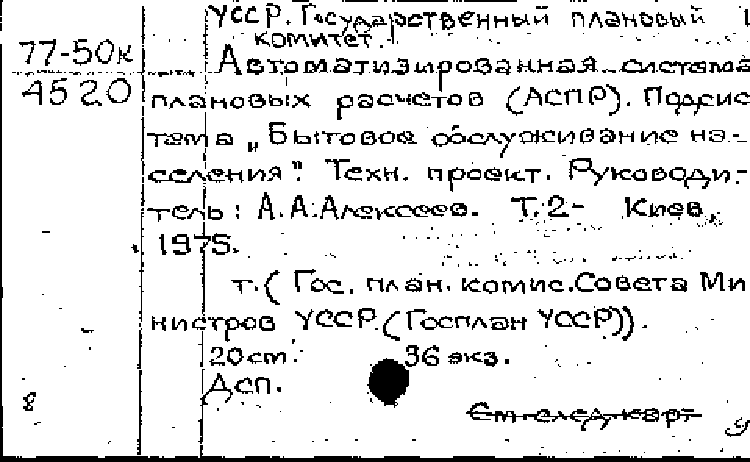 УССР. Государственный плановый
комитет.
77-50к
Автоматизированная система
4520
плановых расчетов (АСПР). Подсис
тема „Бытовое обслуживание на-
селения". Техн. проект. Руководи-
тель: А.А.Алексеев. Т.2- Киев,
1975.
т.( Гос. план. комис.Совета Ми
нистров УССР.(Госплан УССР)).
20см. 36 экз.
Дсп.
8
См.след.карт